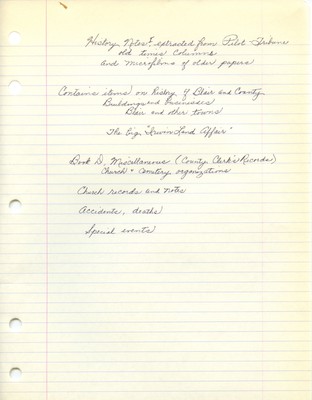 History Notes extracted from Pilot Tribune
old times columns
and microfilms of older papers
Contains items on history of Blair and County
Buildings and businesses
Blair and other towns
The Big "Irwin Land Affair"
Book D, Miscellaneous (County Clerk's Records)
Church & Cemetery organizations
Church records and notes
Accidents, deaths
Special events